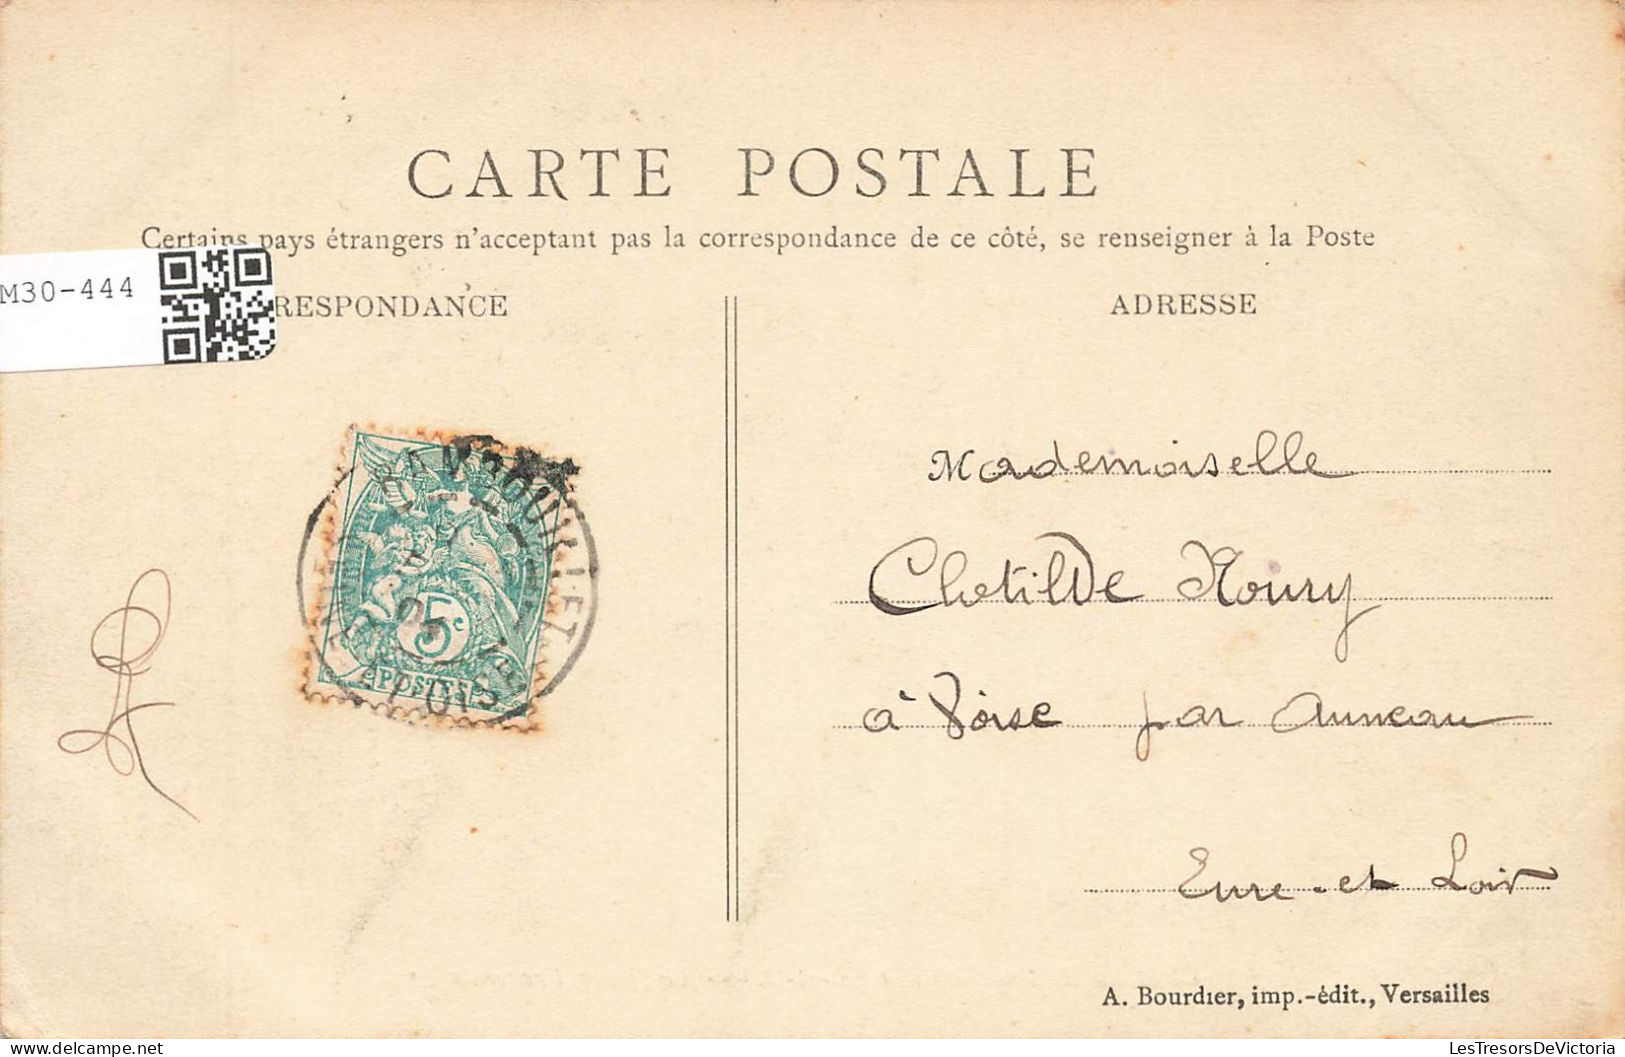 CARTE POSTALE
Certains pays étrangers n'acceptant pas la correspondance de ce côté, se renseigner à la Poste
M30-444
RESPONDANCE
ADRESSE
RAMBOUILLET
5c
POSTES
Mademoiselle
Clotilde Noury
à Voise par Auneau
Eure-et Loir
A. Bourdier, imp.-édit., Versailles
LesTresorsDeVictoria